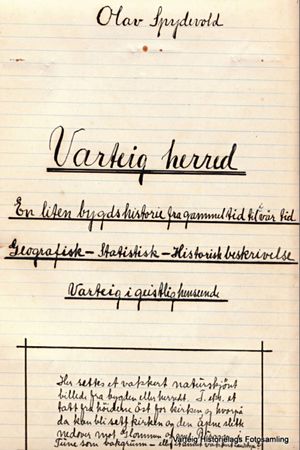 Olav Spydevold
Varteig herred
En liten bygdshistorie fra gammel tid til vår tid
Geografisk - Statistisk - Historisk beskrivelse
Varteig i geistlig henseende
Her settes et vakkert naturskjönt
billede fra bygden eller herredt. T. eks. et
tatt fra höiderne öst for kirken og hvorpå
da kan bli sett kirken og den åpne slette
nedover mot Glommen og
Tune som bakgrunn - eller
Varteig Historielags Fotosamling